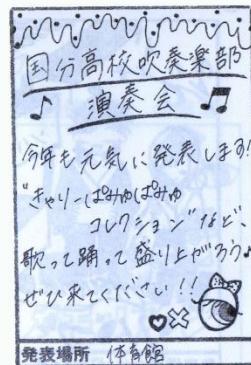 国分高校吹奏楽部
演奏会
今年も元気に発表します!
"きゃりーぱみゅぱみゅ
コレクション"など、
歌って踊って盛り上がろう♪
ぜひ来てください!!
発表場所 体育館